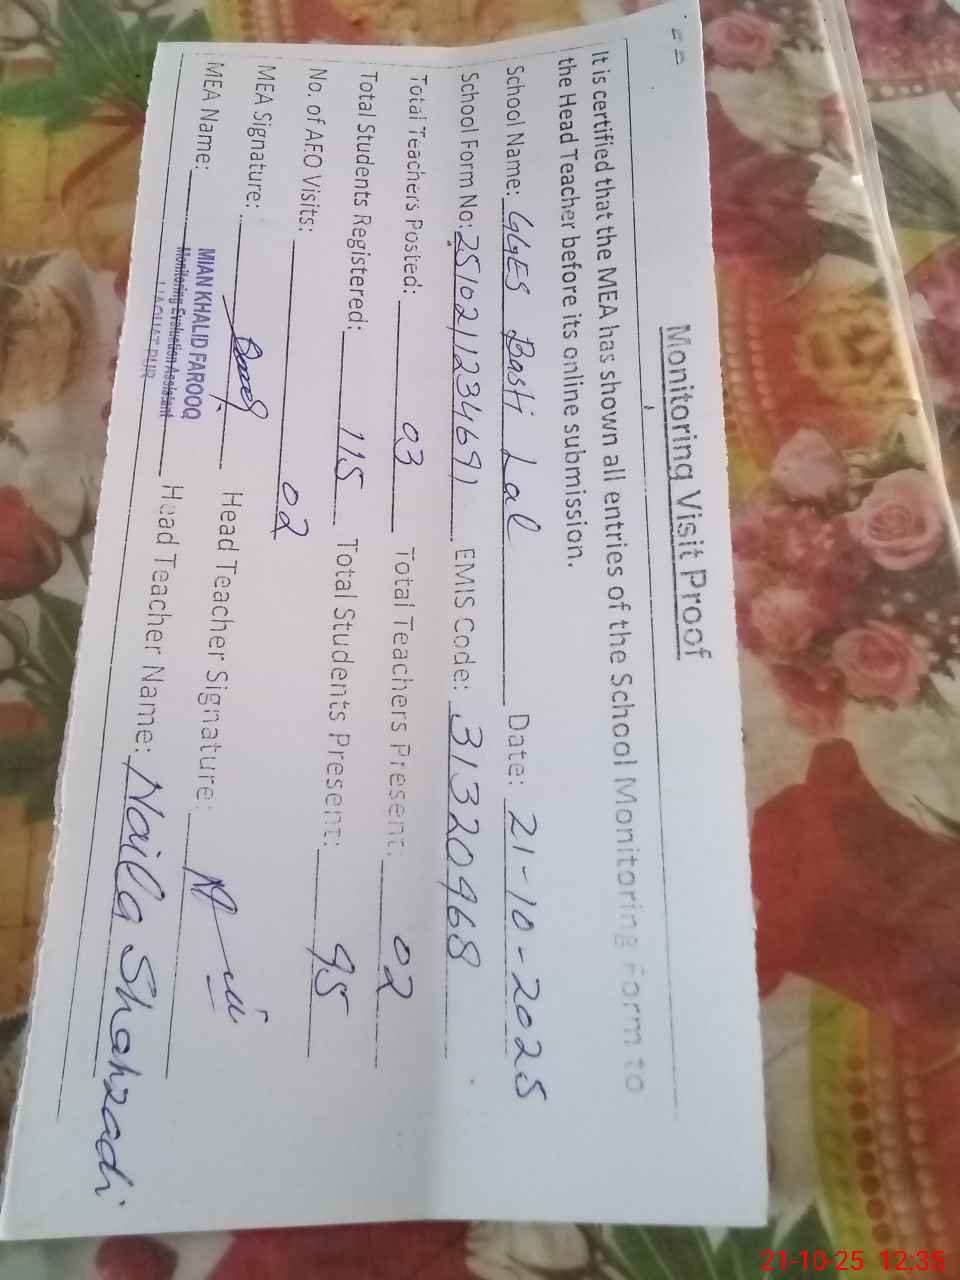 Monitoring Visit Proof
It is certified that the MEA has shown all entries of the School Monitoring Form to
the Head Teacher before its online submission.
School Name: GGES Basti Lal Date: 21-10-2025
School Form No: 2510211234691 EMIS Code: 31320968
Total Teachers Posted: 03 Total Teachers Present: 02
Total Students Registered: 115 Total Students Present: 95
No. of AEO Visits: 02
MEA Signature: Head Teacher Signature:
MEA Name: MIAN KHALID FAROOQ Head Teacher Name: Naila Shahzadi
Monitoring Evaluation Assistant
LIAQUAT PUR
21-10-25 12:35